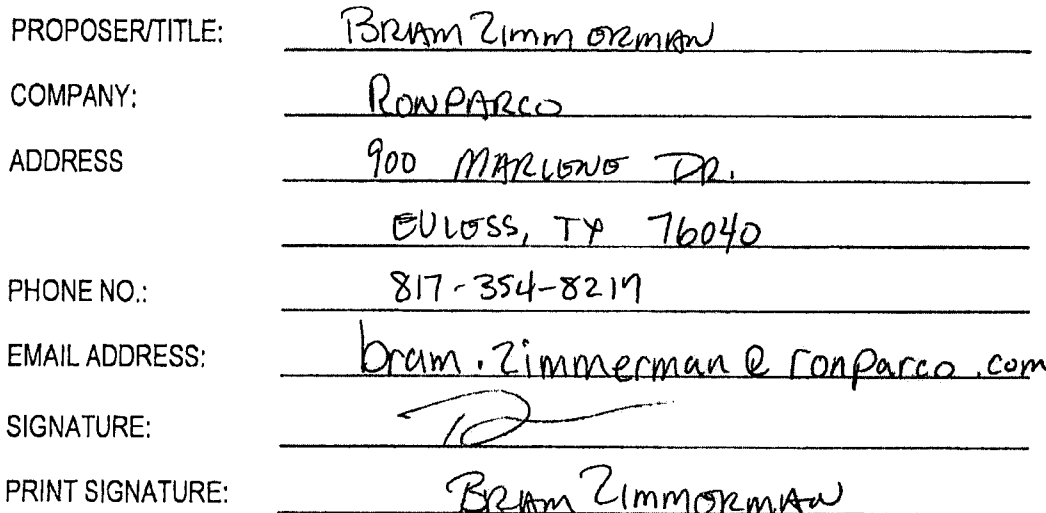 PROPOSER/TITLE: BRAM ZIMMERMAN
COMPANY: RONPARCO
ADDRESS 900 MARLENE DR.
EULESS, TX 76040
PHONE NO.: 817-354-8217
EMAIL ADDRESS: bram.zimmerman@ronparco.com
SIGNATURE:
PRINT SIGNATURE: BRAM ZIMMERMAN